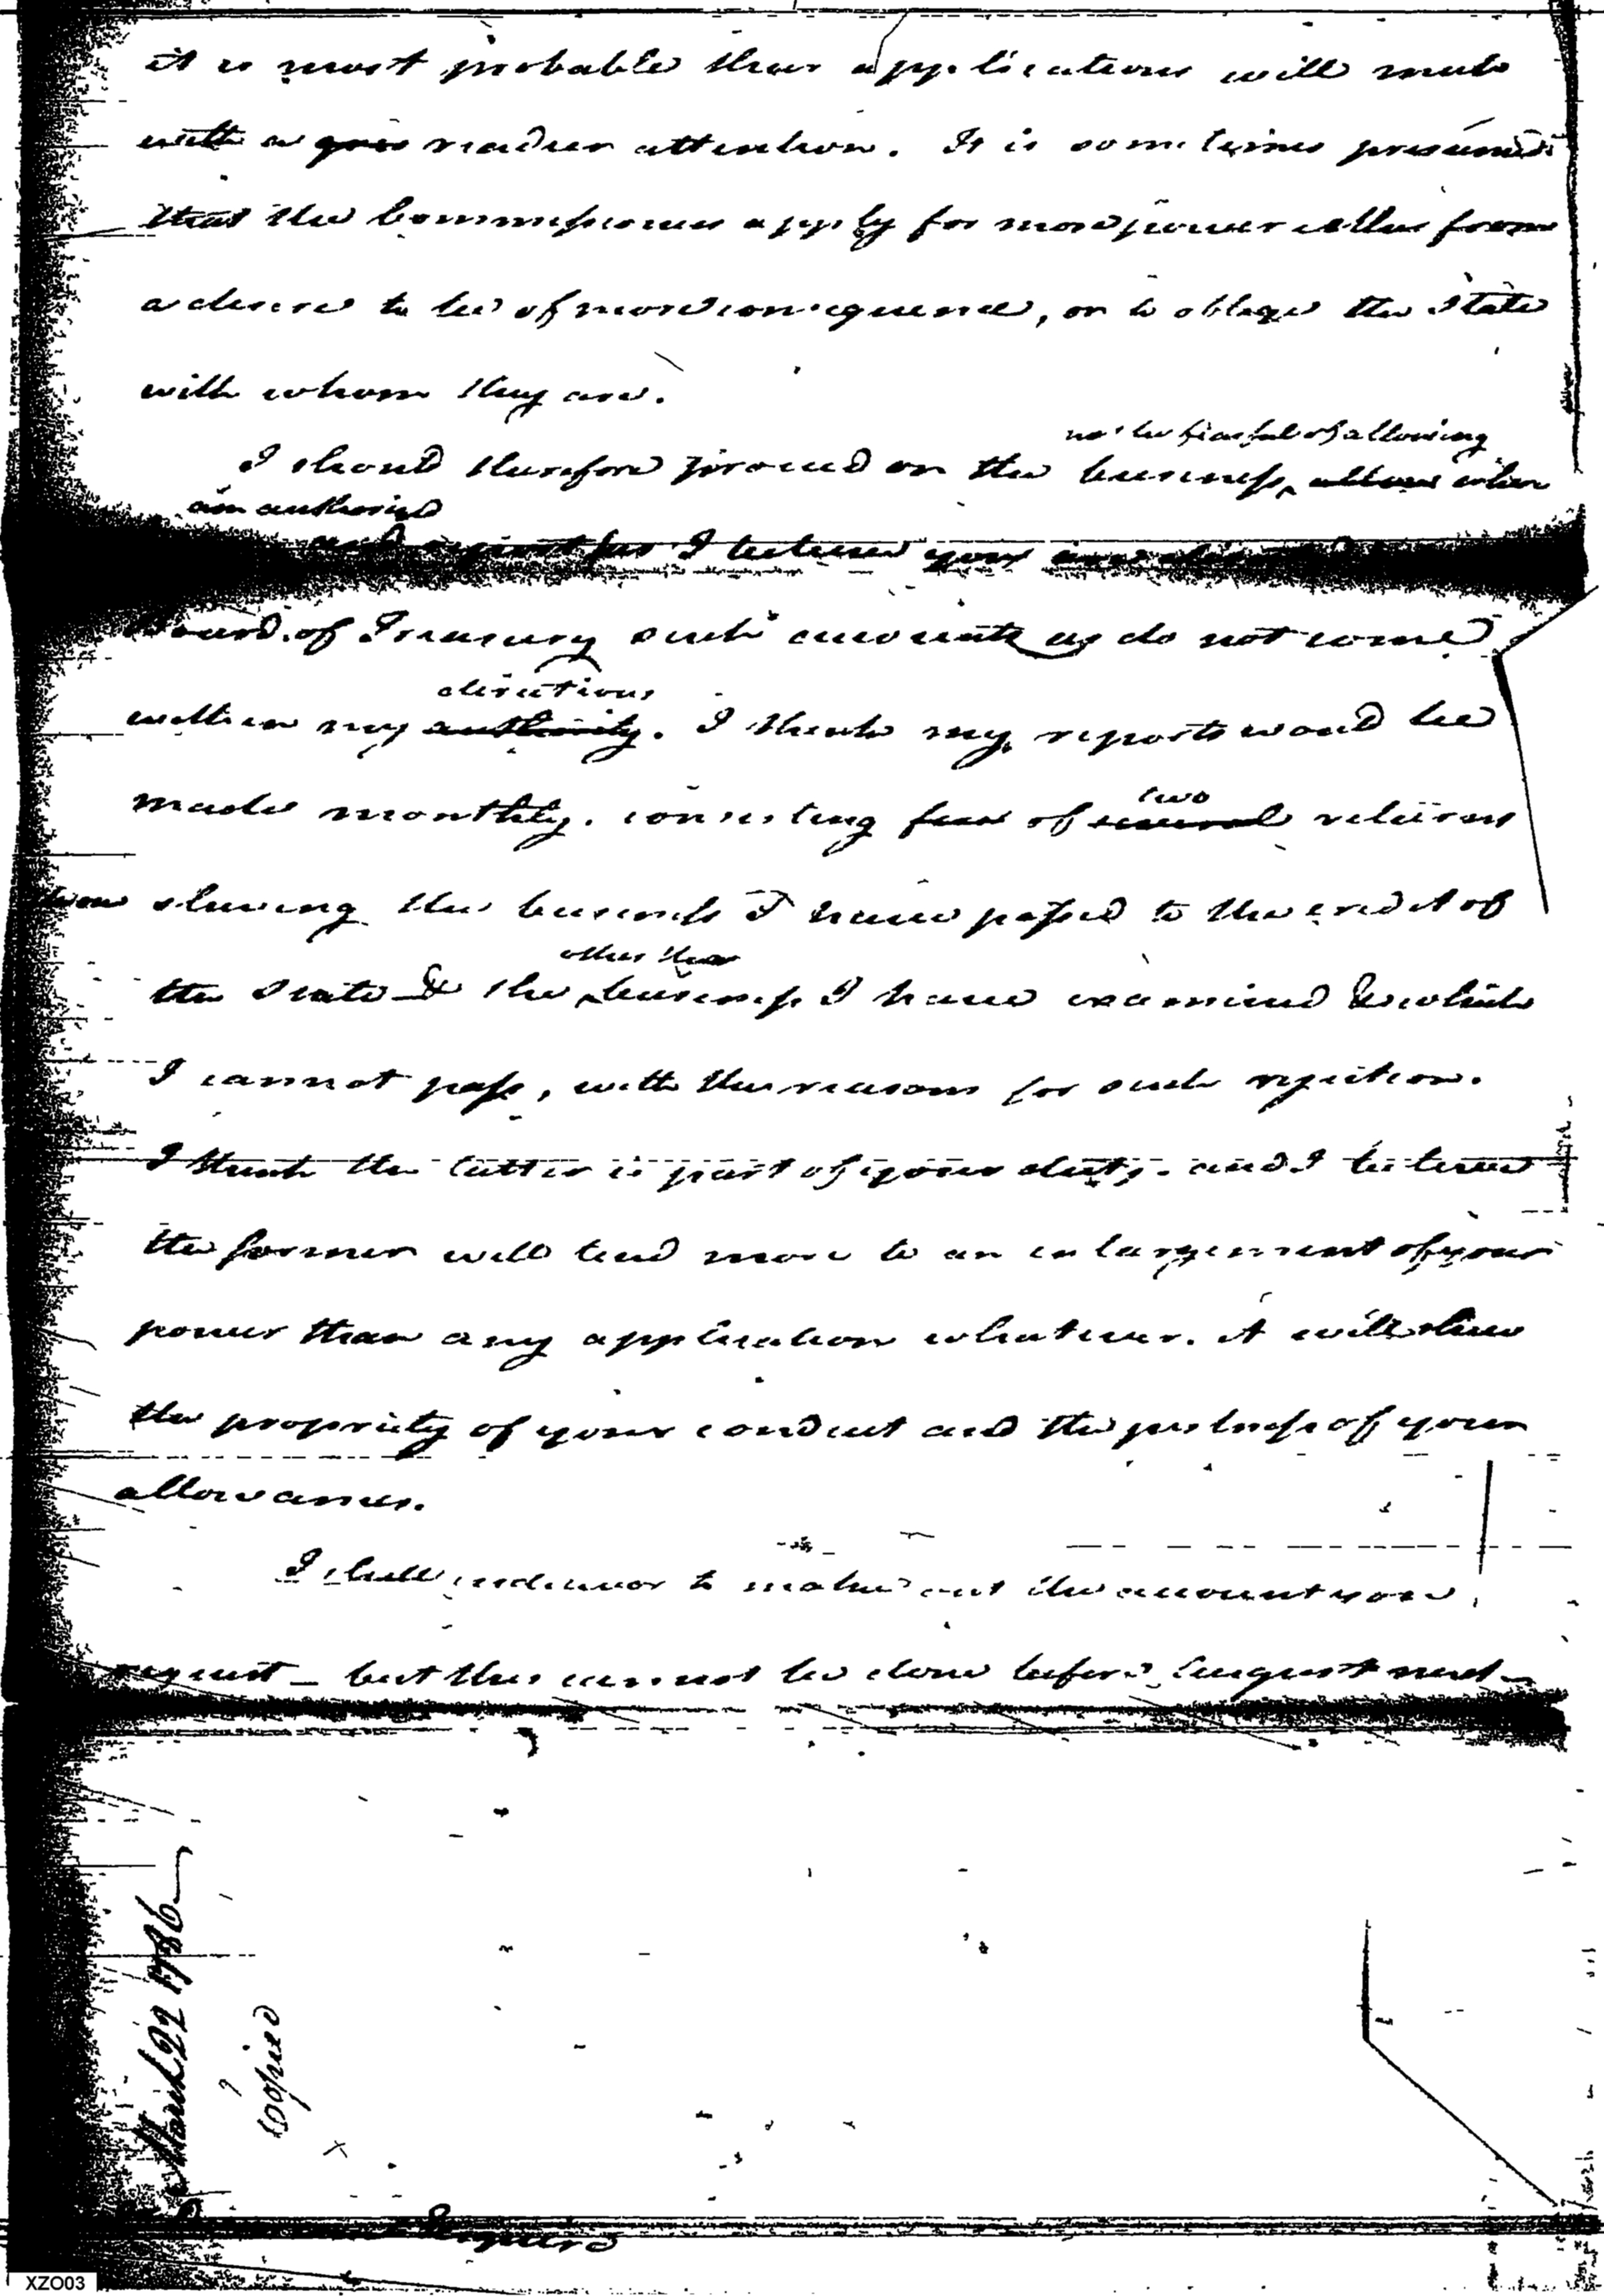 it is most probable their applications will meet
with a readier attention. It is sometimes presumed
that the Commissioners apply for more power either from
a desire to be of more consequence, or to oblige the State
with whom they are.
not be fearful of allowing
I should therefore proceed on the business, allow when
am authorised
and report for I believe your
Board of Treasury such accounts as do not come
directions
within my authority. I think my reports would be
two
made monthly. consisting of several returns
shewing the business I have passed to the credit of
other than
the State & the business I have examined & which
I cannot pass, with the reasons for such rejection.
I think the latter is part of your duty. and I believe
the former will tend more to an enlargement of your
power than any application whatever. it will shew
the propriety of your conduct and the justness of your
allowances.
I shall endeavor to make out the account you
request – but this cannot be done before August next –
March 22 1786
copied
Esquire
XZO03